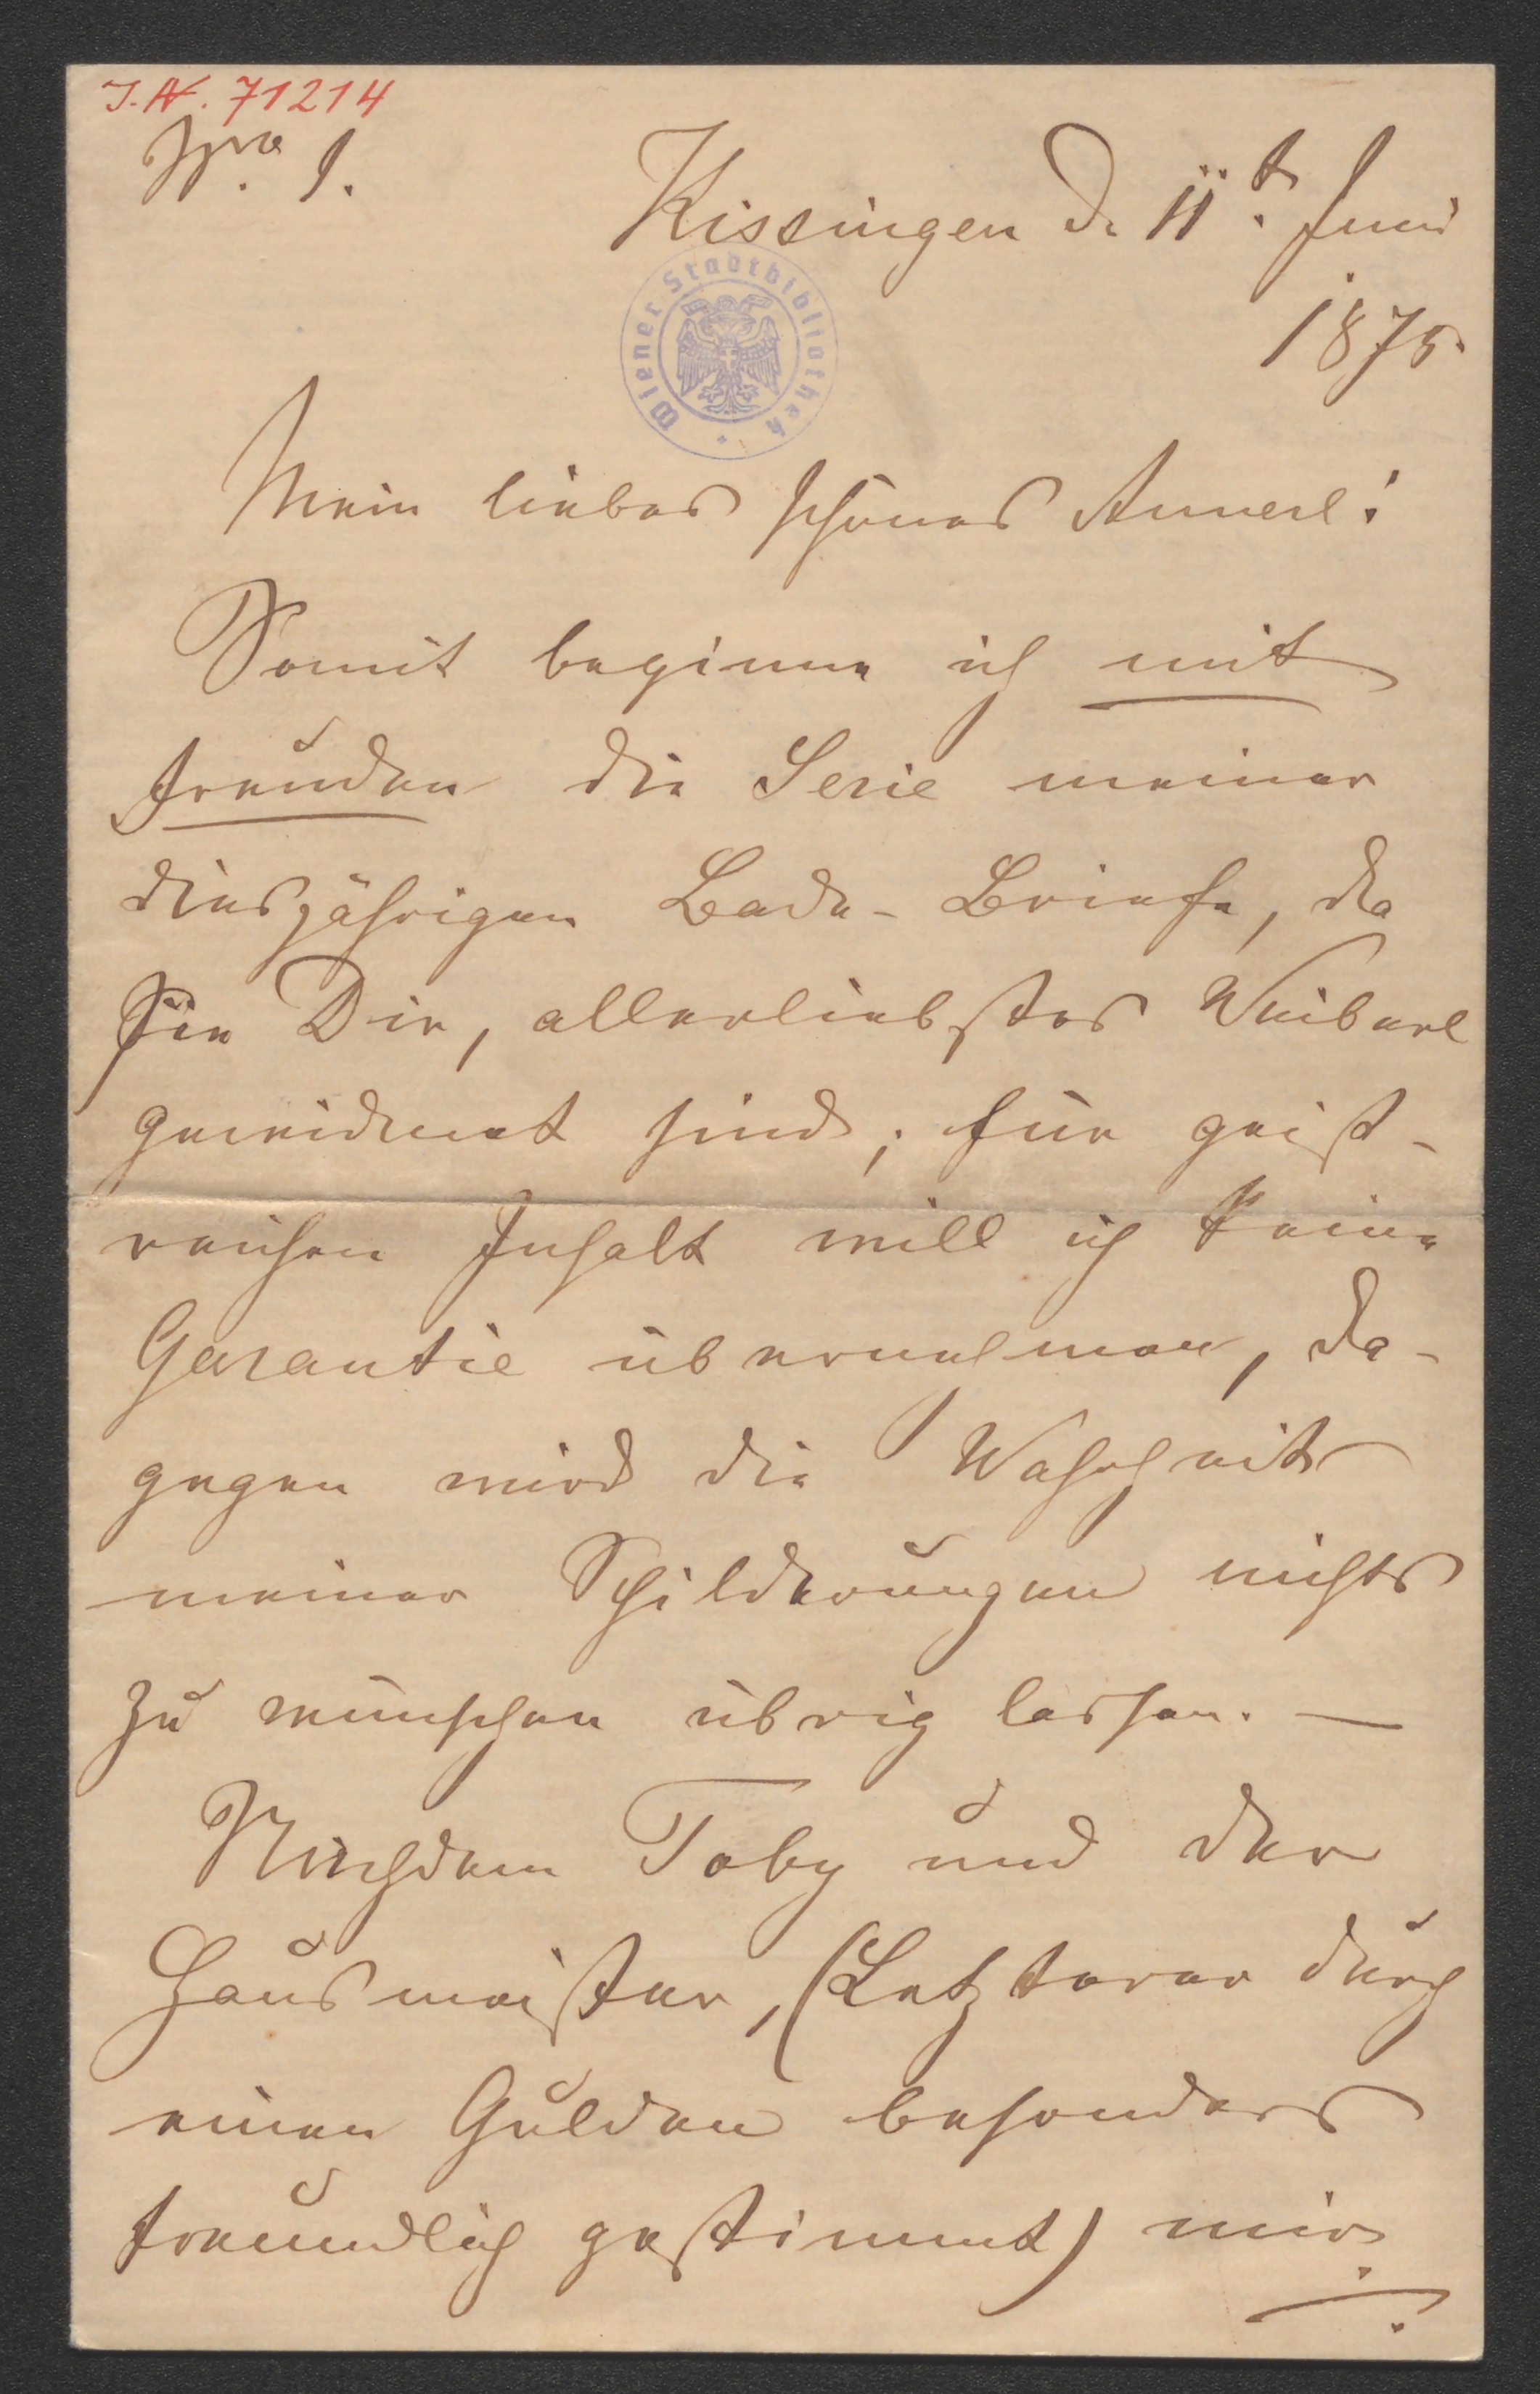 J.N. 71214
Nro. 1.
Kissingen d. 11t. Juni
1875.
Wiener Stadtbibliothek
Mein liebes schönes Annerl!
Somit beginne ich mit
Freuden die Serie meiner
diesjährigen Bade-Briefe, da
sie Dir, allerliebstes Weiberl
gewidmet sind; für geist-
reichen Inhalt will ich keine
Garantie übernehmen, da-
gegen wird die Wahrheit
meiner Schilderungen nichts
zu wünschen übrig lassen. —
Nachdem Toby und der
Hausmeister, (Letzterer durch
einen Gulden besonders
freundlich gestimmt) mir